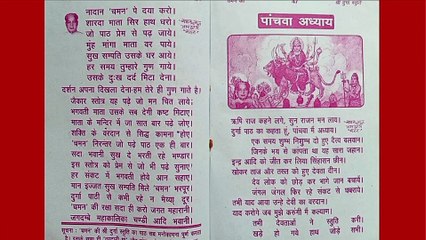 नादान 'चमन' पे दया करो।
शारदा माता सिर हाथ धरो।
जो पाठ प्रेम से पढ़ जाये।
मुह मांगा माता वर पाये।
सुख सम्पति उसके घर आये।
हर समय तुम्हारे गुण गाये।
उसके दुःख दर्द मिटा देना।
दर्शन अपना दिखला देना-हम तेरे ही गुण गाते है।
जेकार स्तोत्र यह पढ़े जो मन चित लाये।
भगवती माता उसके सब देगी कष्ट मिटाए।
माता के मन्दिर में जा सात बार पढ़े जोए।
शक्ति के वरदान से सिद्ध कामना होए।
'चमन' निरन्तर जो पढ़े पाठ एक ही बार।
सदा भवानी सुख दे भरती रहे भण्डार।
इस स्तोत्र को प्रेम से जो भी पढ़े सुनाए।
हर संकट में भगवती होवे आन सहाए।
मान इज्जत सुख सम्पति मिले 'चमन' भरपूर।
दुर्गा पाठी से कभी रहे न मेय्या दूर।
'चमन' की रक्षा सदा ही करो जगत महारानी।
जगदम्बे महाकालिका चण्डी आदि भवानी।
श्री दुर्गा स्तुति
पांचवा अध्याय
ऋषि राज कहने लगे, सुन राजन मन लाय।
दुर्गा पाठ का कहता हूं, पांचवा में अध्याय।
एक समय शुम्भ निशुम्भ दो हुए दैत्य बलवान।
जिनके भय से कांपता था यह सारा जहान।
इन्द्र आदि को जीत कर लिया सिंहासन छीन।
खोकर ताज और तख्त को हुए देवता दीन।
देव लोक को छोड़ कर भागे जान बचाये।
जंगल जंगल फिर रहे संकट से घबराये।
तभी याद आया उन्हे देवी का वरदान।
याद करोगे जब मुझे करूंगी में कल्याण।
तभी देवताओं ने स्तुति करी।
खड़े हो गये हाथ जोड़े सभी।